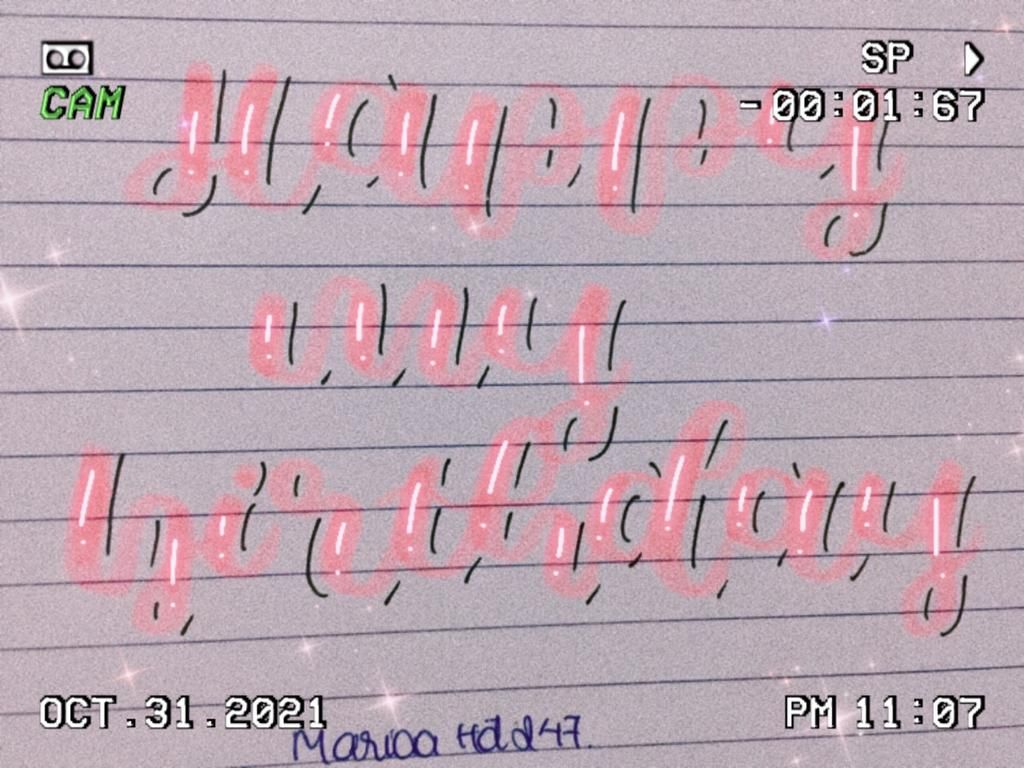 SP
CAM
-00:01:67
Happy
my
birthday
OCT.31.2021
PM 11:07
Marwa Hdd47.